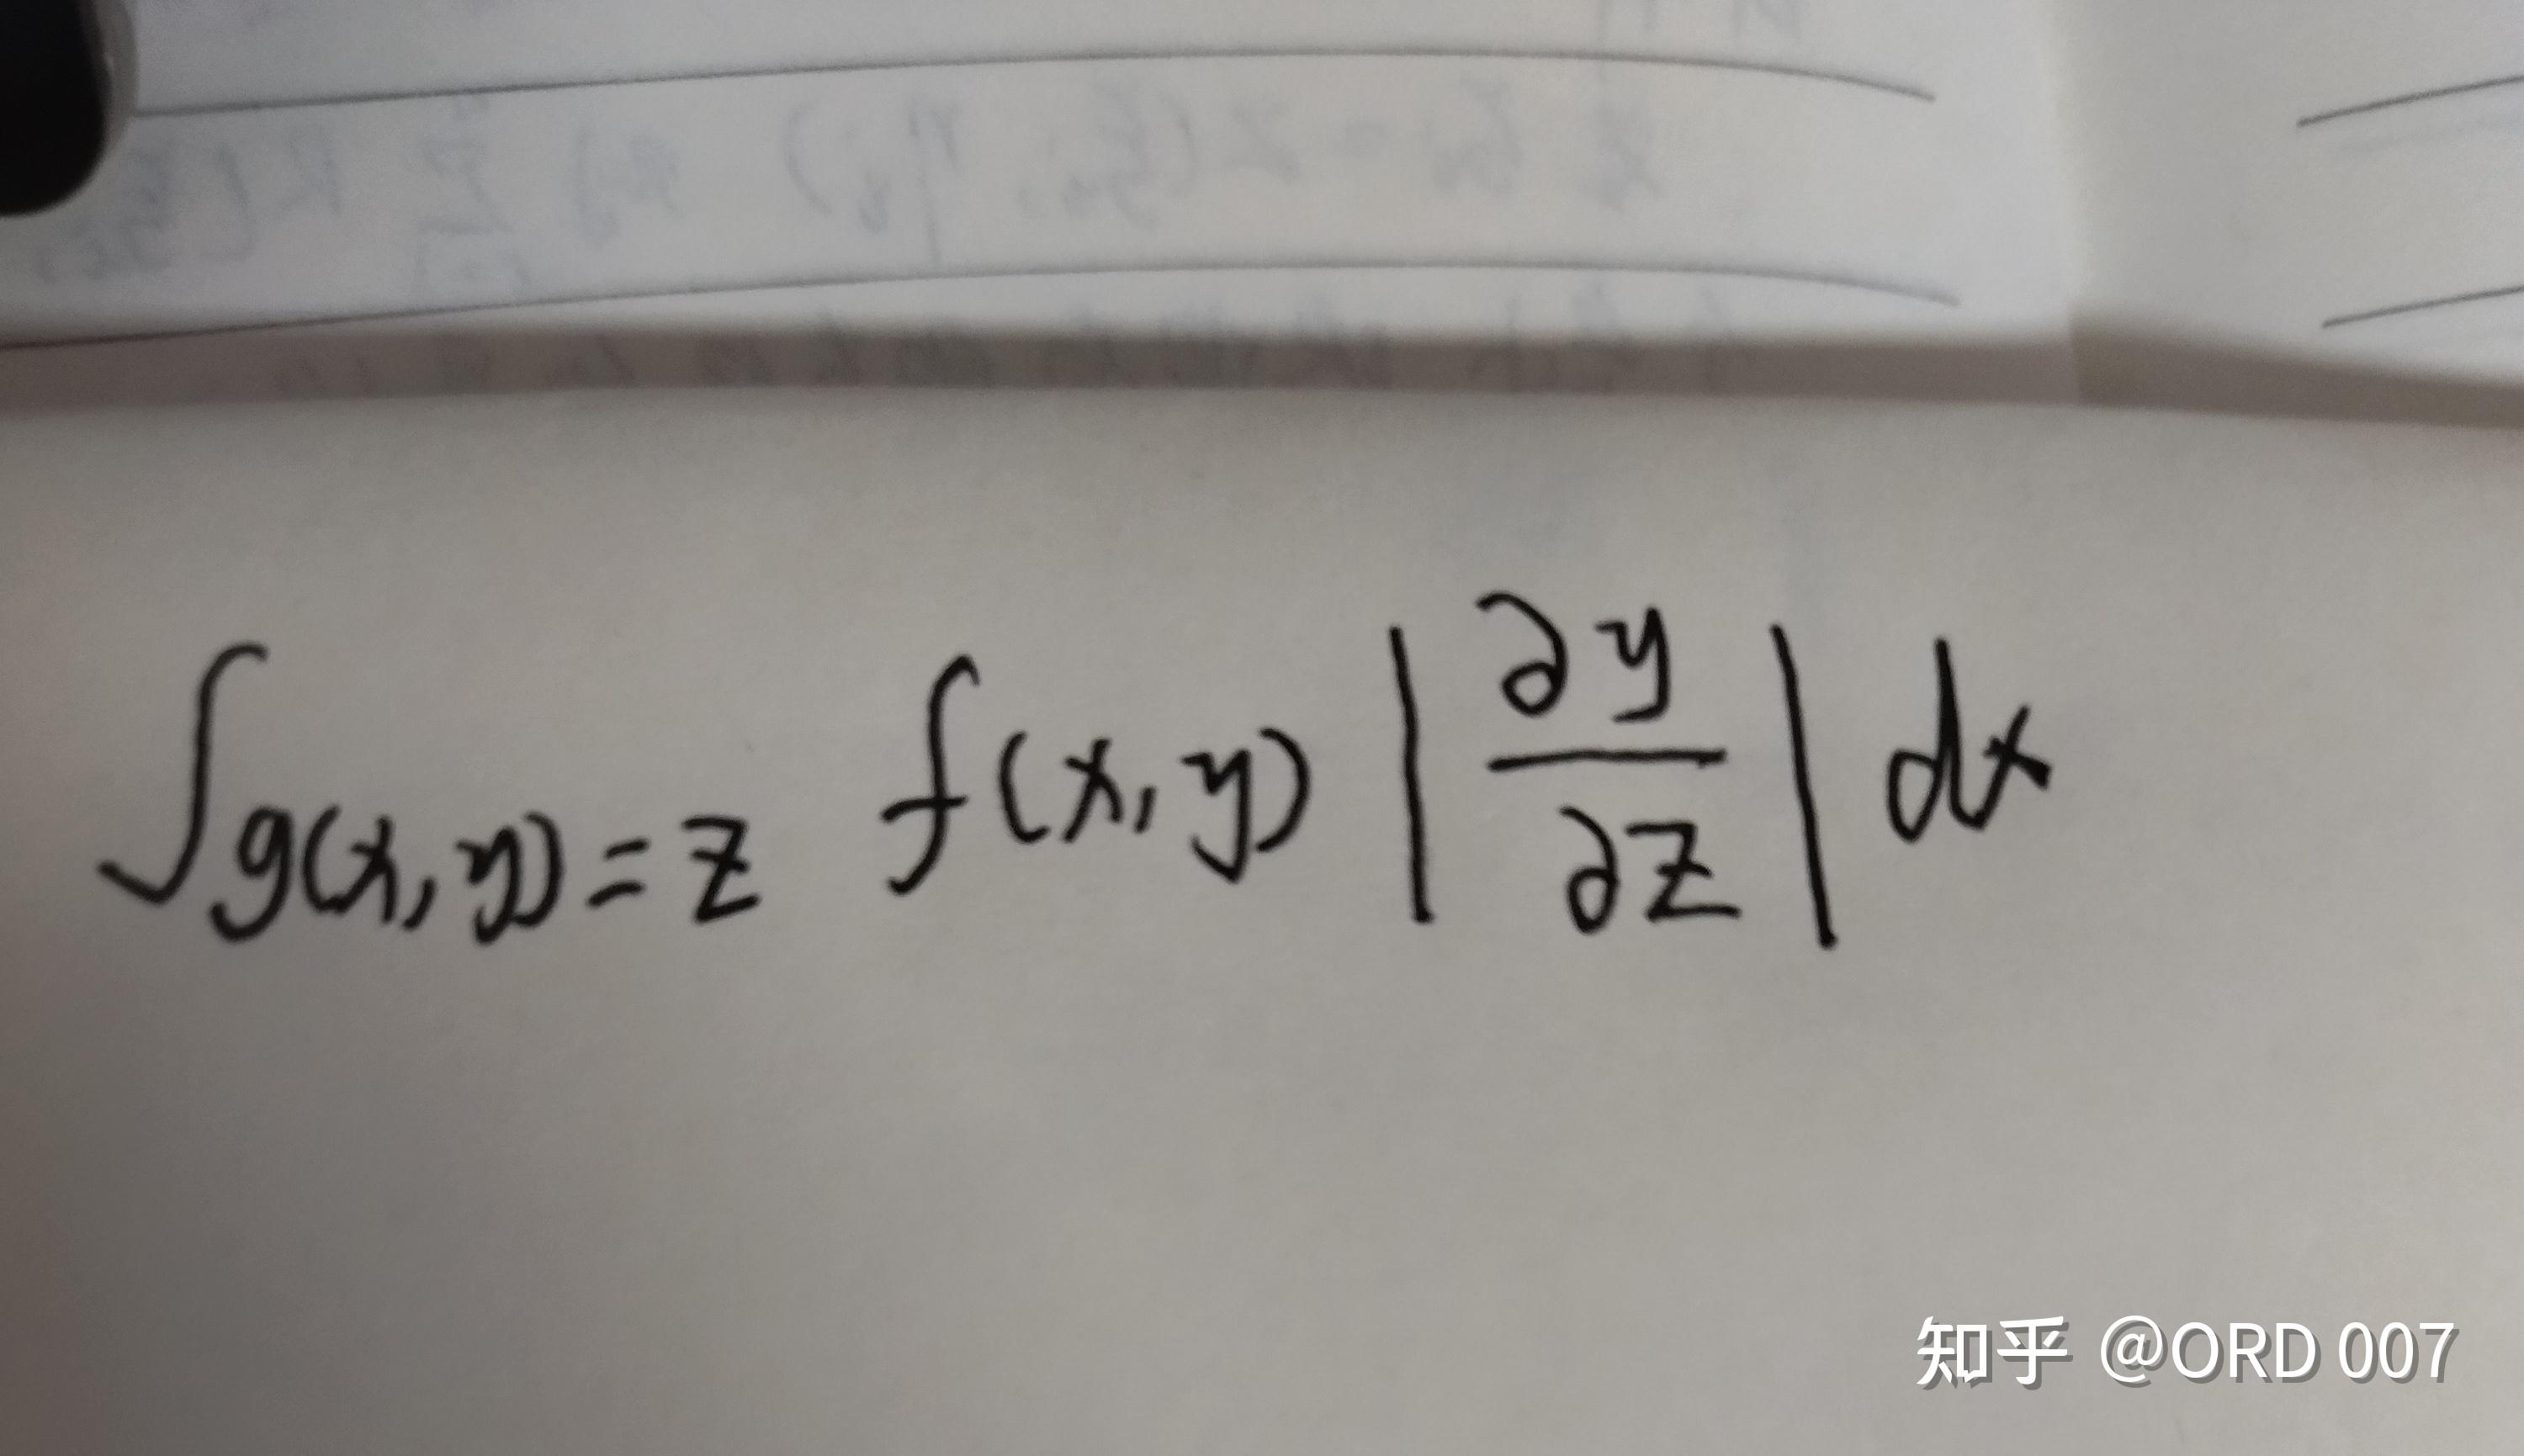 ∫g(x,y)=z f(x,y) |∂y/∂z| dx
知乎 @ORD 007